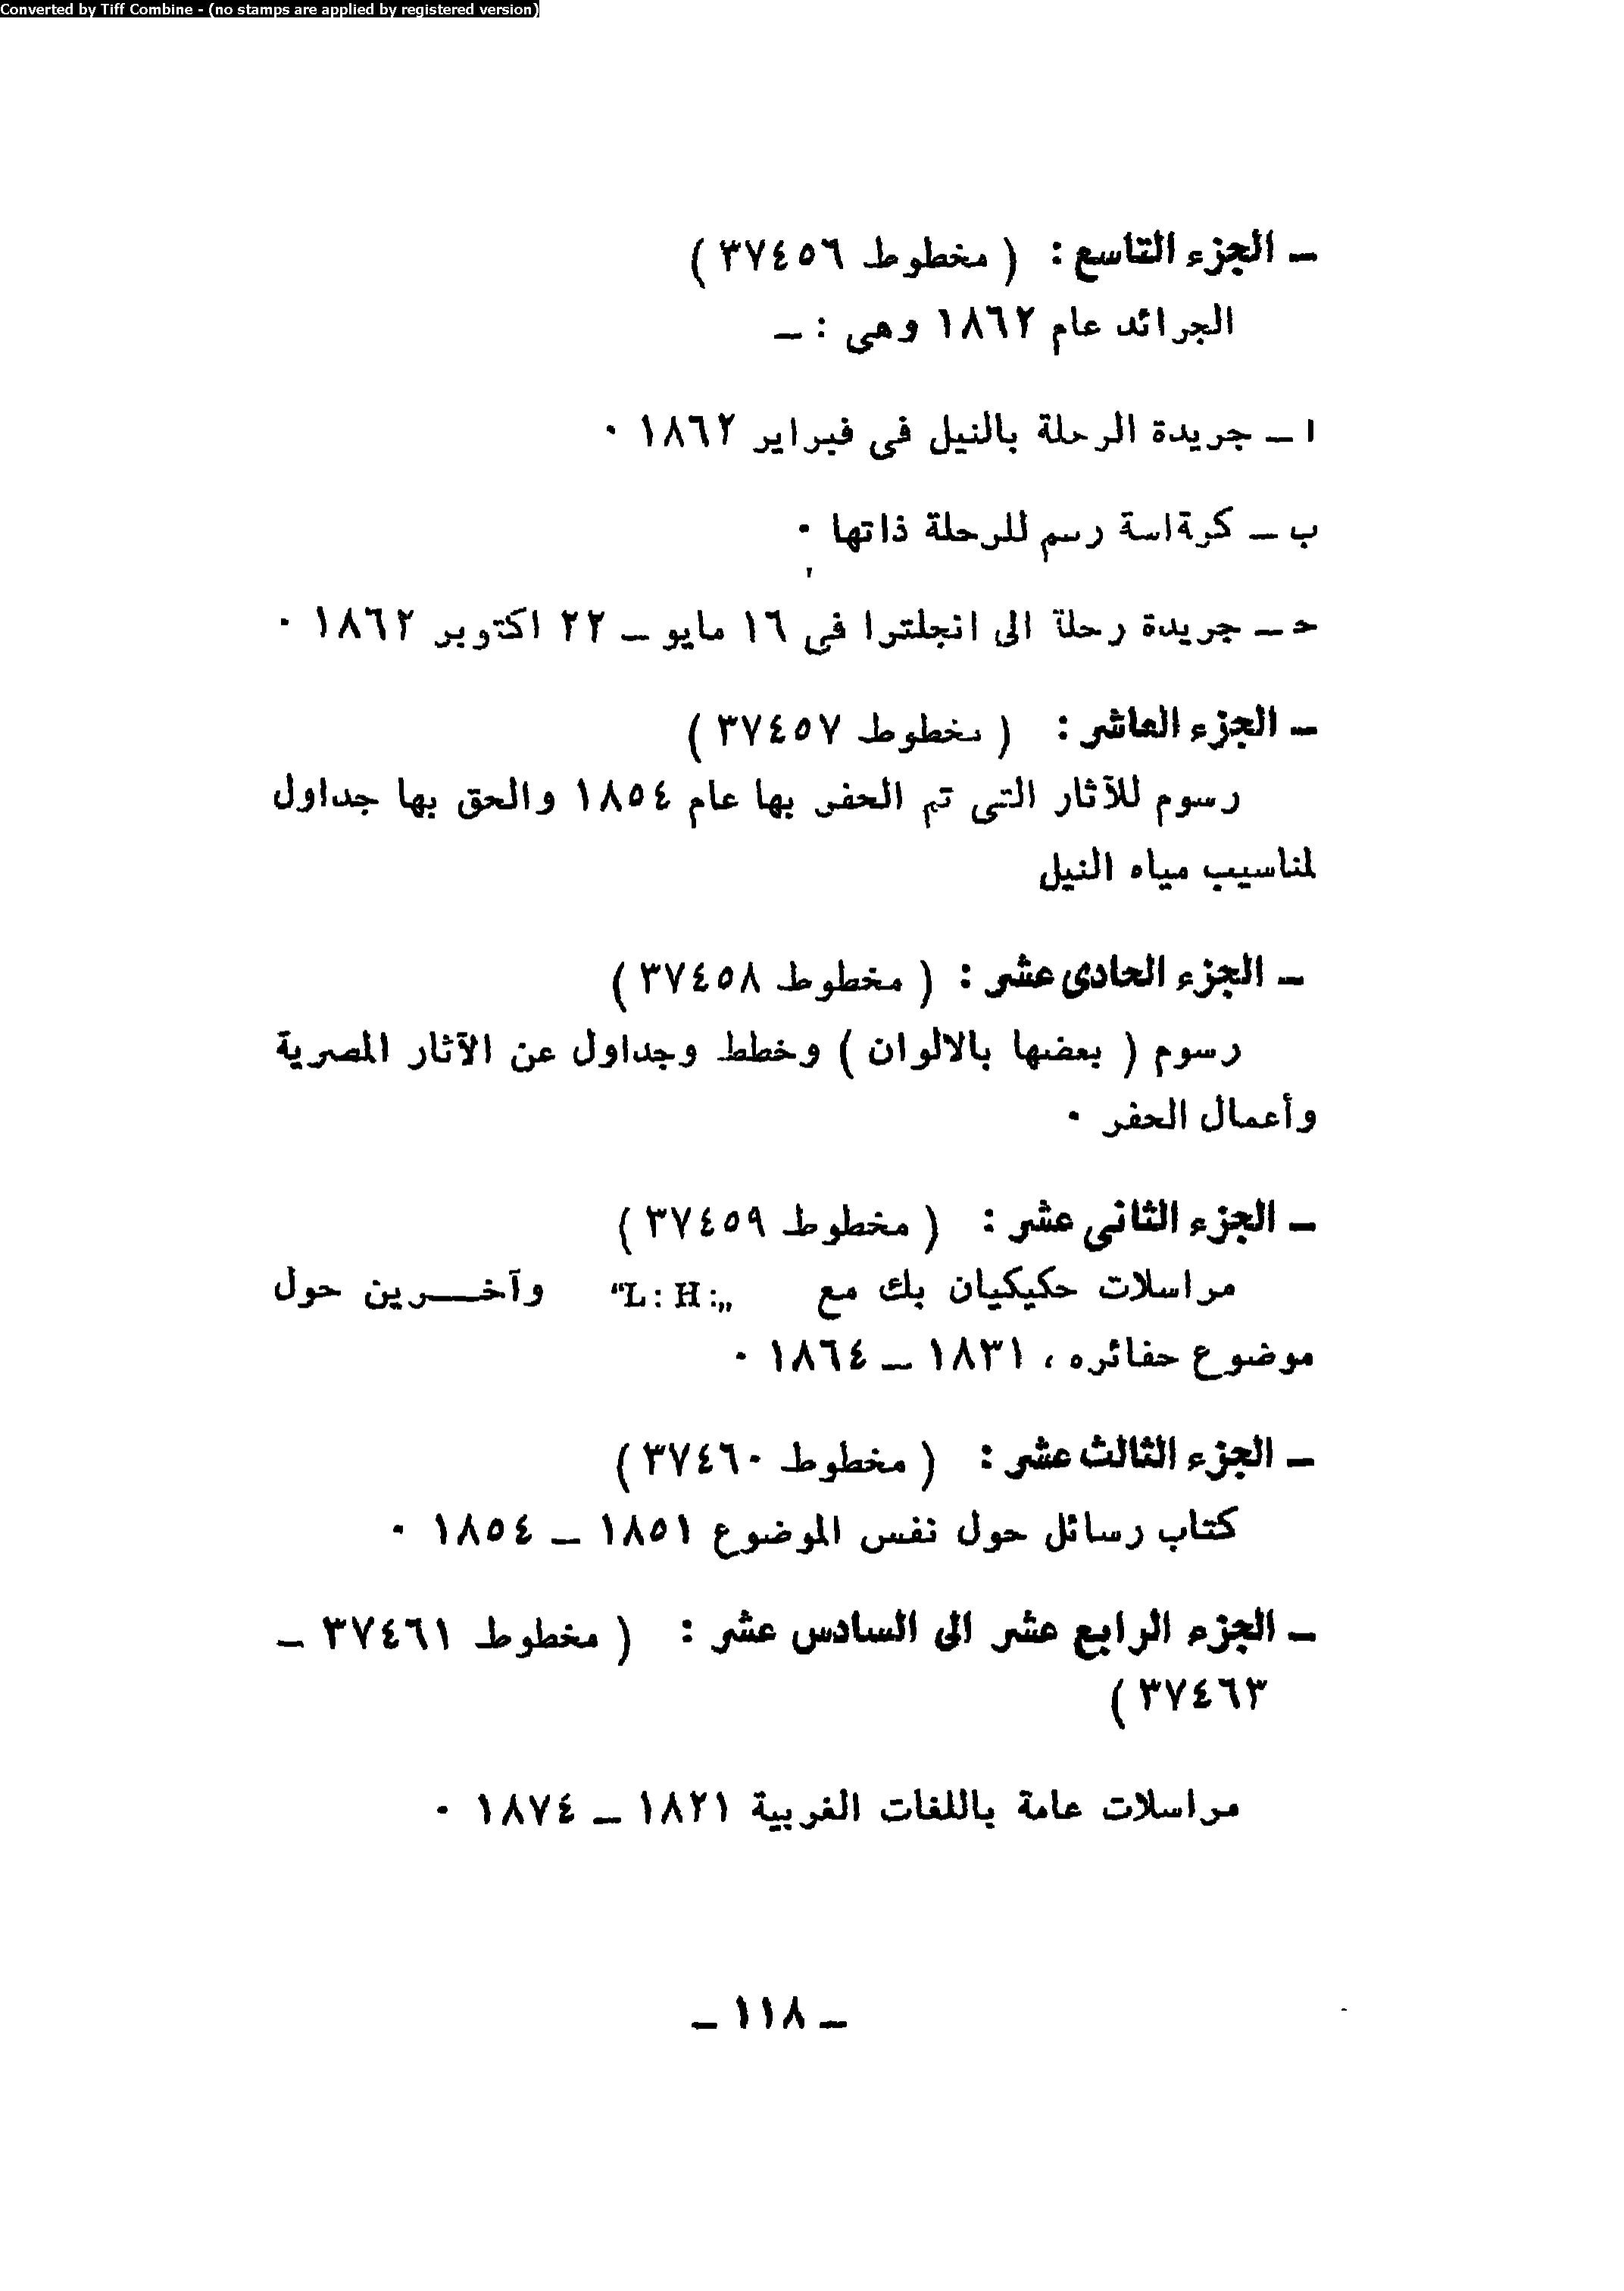 Converted by Tiff Combine - (no stamps are applied by registered version)
ــ الجزء التاسع : ( مخطوط ٣٧٤٥٦ )
الجرائد عام ١٨٦٢ وهى : ــ
ا ــ جريدة الرحلة بالنيل فى فبراير ١٨٦٢ ٠
ب ــ كرةاسة رسم للرحلة ذاتها ٠
حـ ــ جريدة رحلة الى انجلترا فى ١٦ مايو ــ ٢٢ اكتوبر ١٨٦٢ ٠
ــ الجزء العاشر : ( مخطوط ٣٧٤٥٧ )
رسوم للآثار التى تم الحفر بها عام ١٨٥٤ والحق بها جداول
لمناسيب مياه النيل
ــ الجزء الحادى عشر : ( مخطوط ٣٧٤٥٨ )
رسوم ( بعضها بالالوان ) وخطط وجداول عن الآثار المصرية
وأعمال الحفر ٠
ــ الجزء الثانى عشر : ( مخطوط ٣٧٤٥٩ )
مراسلات حكيكيان بك مع “L: H:„ وآخـــرين حول
موضوع حفائره ، ١٨٣١ ــ ١٨٦٤ ٠
ــ الجزء الثالث عشر : ( مخطوط ٣٧٤٦٠ )
كتاب رسائل حول نفس الموضوع ١٨٥١ ــ ١٨٥٤ ٠
ــ الجزء الرابع عشر الى السادس عشر : ( مخطوط ٣٧٤٦١ ــ
٣٧٤٦٣ )
مراسلات عامة باللغات الغربية ١٨٢١ ــ ١٨٧٤ ٠
ــ ١١٨ ــ